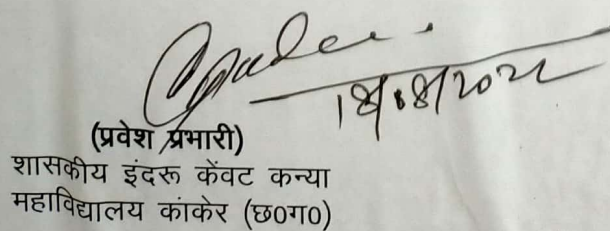 18/08/2022
(प्रवेश प्रभारी)
शासकीय इंदरू केंवट कन्या
महाविद्यालय कांकेर (छ0ग0)